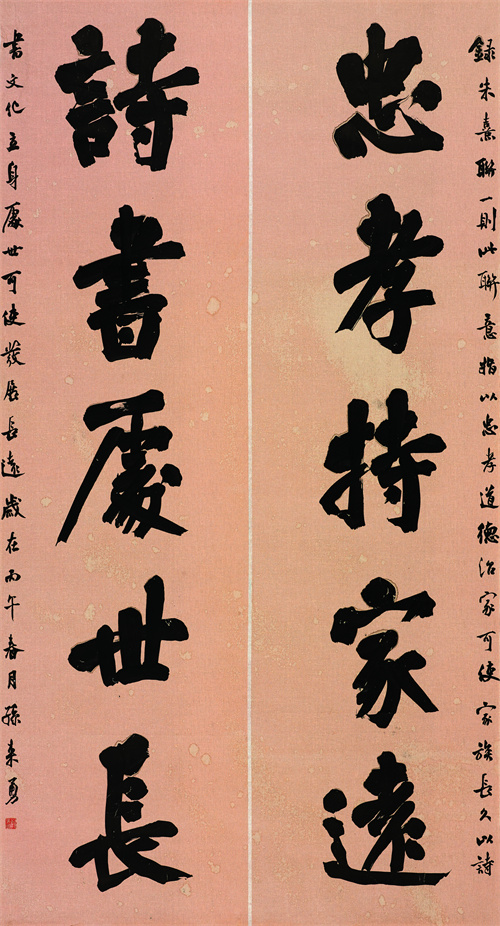 錄朱熹聯一則此聯意指以忠孝道德治家可使家族長久以詩
忠孝持家遠
詩書處世長
書文化立身處世可使發展長遠歲在丙午春月孫來勇